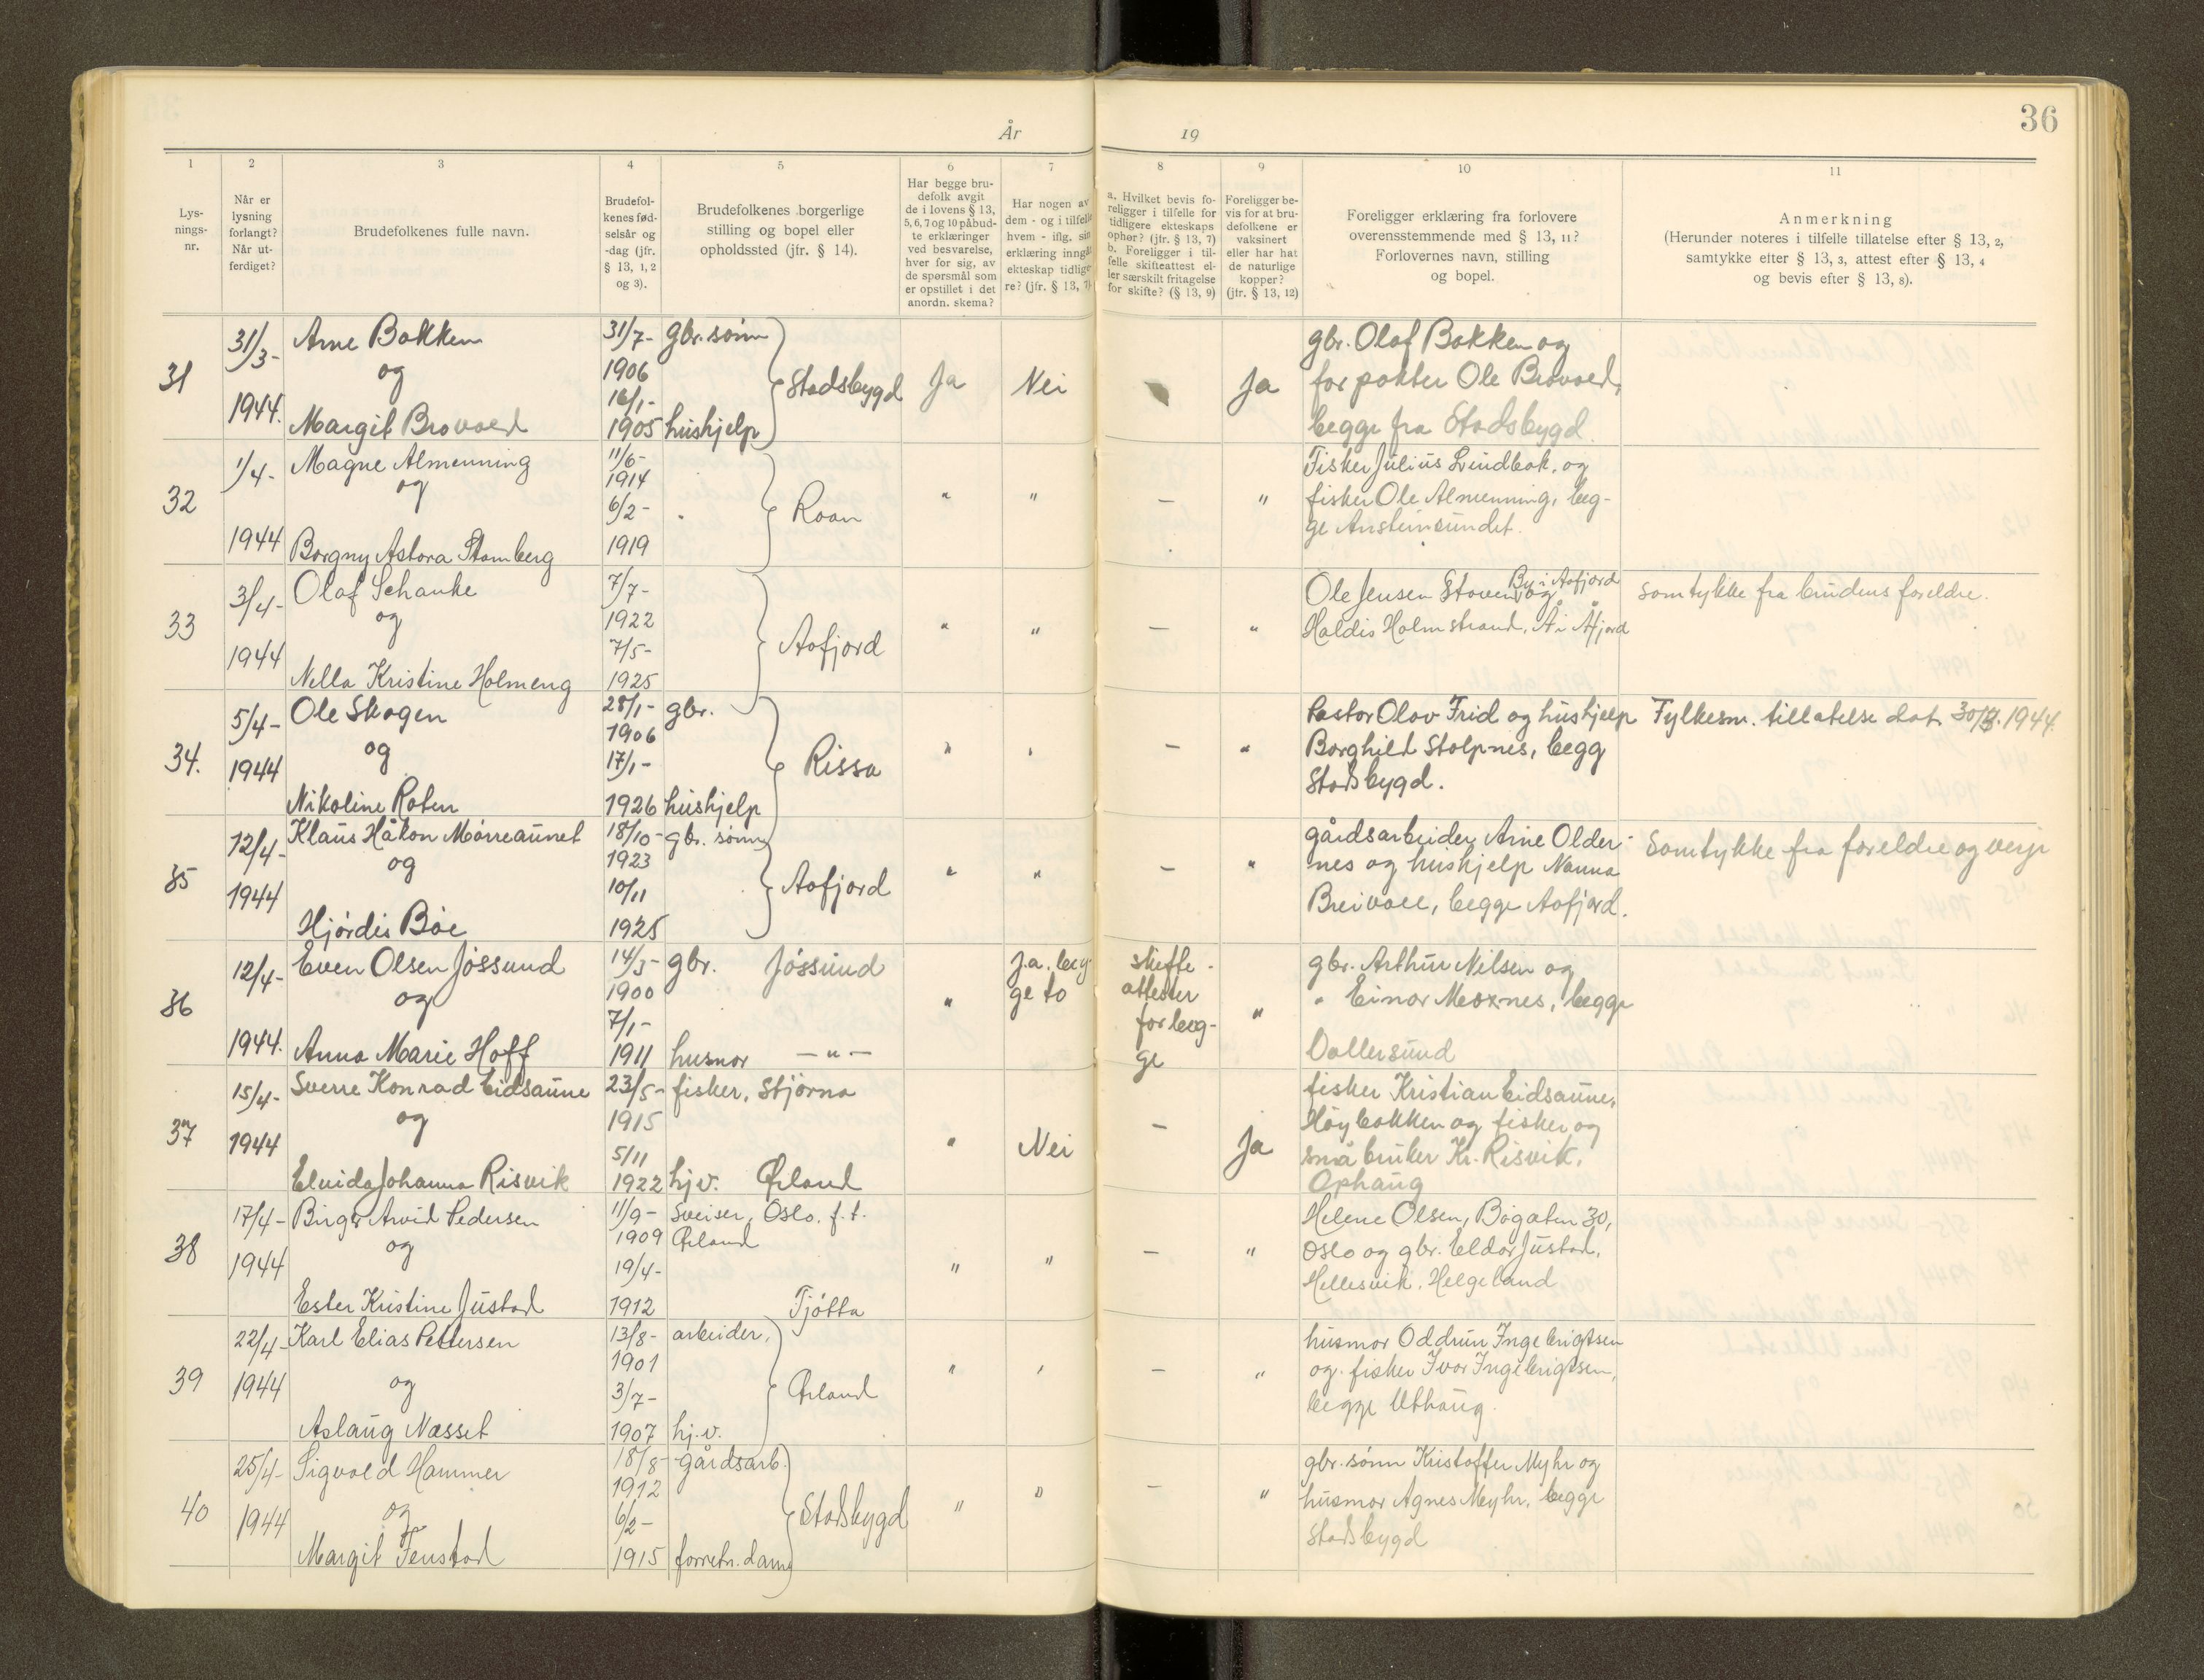 36
År 19
1 2 3 4 5 6 7 8 9 10 11
Lys-
nings-
nr.
Når er
lysning
forlangt?
Når ut-
ferdiget?
Brudefolkenes fulle navn.
Brudefol-
kenes fød-
selsår og
-dag (jfr.
§ 13, 1, 2
og 3).
Brudefolkenes borgerlige
stilling og bopel eller
opholdssted (jfr. § 14).
Har begge bru-
defolk avgit
de i lovens § 13,
5, 6, 7 og 10 påbud-
te erklæringer
ved besvarelse,
hver for sig, av
de spørsmål som
er opstillet i det
anordn. skema?
Har nogen av
dem - og i tilfelle
hvem - iflg. sin
erklæring inngåt
ekteskap tidlige-
re? (jfr. § 13, 7)
a. Hvilket bevis fo-
religger i tilfelle for
tidligere ekteskaps
ophør? (jfr. § 13, 7)
b. Foreligger i til-
felle skifteattest el-
ler særskilt fritagelse
for skifte? (§ 13, 9)
Foreligger be-
vis for at bru-
defolkene er
vaksinert
eller har hat
de naturlige
kopper?
(jfr. § 13, 12)
Foreligger erklæring fra forlovere
overensstemmende med § 13, 11?
Forlovernes navn, stilling
og bopel.
Anmerkning
(Herunder noteres i tilfelle tillatelse efter § 13, 2,
samtykke efter § 13, 3, attest efter § 13, 4
og bevis efter § 13, 8).
31
31/3-
1944.
Arne Bakken
og
Margit Brovold
31/7-
1906
16/1-
1905
gbr. sønn
hushjelp
Stadsbygd
Ja
Nei
Ja
gbr. Olaf Bakken og
forpakter Ole Brovold,
begge fra Stadsbygd.
32
1/4-
1944
Magne Almenning
og
Borgny Astora Stamberg
11/6-
1914
6/2-
1919
Roan
" " - "
Fisker Julius Lindbak, og
fisker Ole Almenning, beg-
ge Ansteinsundet.
33
3/4-
1944
Olaf Schanke
og
Nella Kristine Holmeng
7/7-
1922
7/5-
1925
Aafjord
" " - "
By i Aafjord
Ole Jensen Støven, og
Haldis Holmstrand, Å i Åfjord
Samtykke fra brudens foreldre.
34.
5/4-
1944
Ole Skogen
og
Nikoline Roten
28/1-
1906
17/1-
1926
gbr.
hushjelp
Rissa
" " - "
Pastor Olav Frid og hushjelp
Borghild Stolpnes, begg
Stadsbygd.
Fylkesm. tillatelse dat. 30/3. 1944.
35
12/4-
1944
Klaus Håkon Mørreaunet
og
Hjørdis Bøe
18/10-
1923
10/11
1925
gbr. sønn
Aafjord
" " - "
gårdsarbeider Arne Older-
nes og hushjelp Nanna
Breivoll, begge Aafjord.
Samtykke fra foreldre og verje
36
12/4-
1944.
Even Olsen Jøssund
og
Anna Marie Hoff
14/3-
1900
7/1-
1911
gbr. Jøssund
husmor - " -
"
Ja. beg-
ge to
skifte-
attester
for beg-
ge
"
gbr. Arthur Nilsen og
" Einar Moxnes, begge
Vallersund
37
15/4-
1944
Sverre Konrad Eidsaune
og
Elvida Johanna Risvik
23/5-
1915
5/11
1922
fisker, Stjørna
hjv. Ørland
"
Nei
-
Ja
fisker Kristian Eidsaune,
Høybakken og fisker og
småbruker Kr. Risvik,
Ophaug
38
17/4-
1944
Birger Arvid Pedersen
og
Ester Kristine Justad
11/9-
1909
19/4-
1912
Sveiser, Oslo. f.t.
Ørland
Tjøtta
" " - "
Helene Olsen, Bøgaten 30,
Oslo og gbr. Eldor Justad,
Hellesvik, Helgeland
39
22/4-
1944
Karl Elias Pettersen
og
Aslaug Næsset
13/8-
1901
3/7-
1907
arbeider,
hj.v.
Ørland
" " - "
husmor Oddrun Ingebrigtsen
og fisker Ivar Ingebrigtsen,
begge Uthaug.
40
25/4-
1944
Sigvald Hammer
og
Margit Fenstad
18/8-
1912
6/2-
1915
gårdsarb.
forretn.dame
Stadsbygd
" " - "
gbr. sønn Kristoffer Myhr og
husmor Agnes Myhr, begge
Stadsbygd